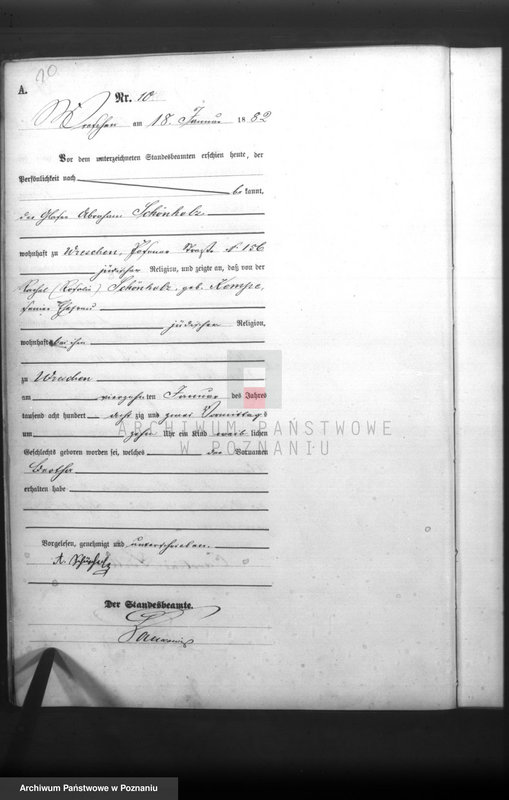 10
A.
Nr. 10
Wreschen am 18. Januar 1882
Vor dem unterzeichneten Standesbeamten erschien heute, der
Persönlichkeit nach
be kannt,
der Glaser Abraham Schönholz
wohnhaft zu Wreschen, Posener Straße № 156
jüdischer Religion, und zeigte an, daß von der
(Rosalie) Schönholz, geb. Kempe,
seiner Ehefrau
jüdischer Religion,
wohnhaft bei ihm
zu Wreschen
am vierzehn ten Januar des Jahres
tausend acht hundert acht zig und zwei Vormittags
um zehn Uhr ein Kind weib lichen
Geschlechts geboren worden sei, welches den Vornamen
Bertha
erhalten habe
Vorgelesen, genehmigt und unterschrieben.
A. Schönholz
Der Standesbeamte.
ARCHIWUM PAŃSTWOWE
W POZNANIU
Archiwum Państwowe w Poznaniu